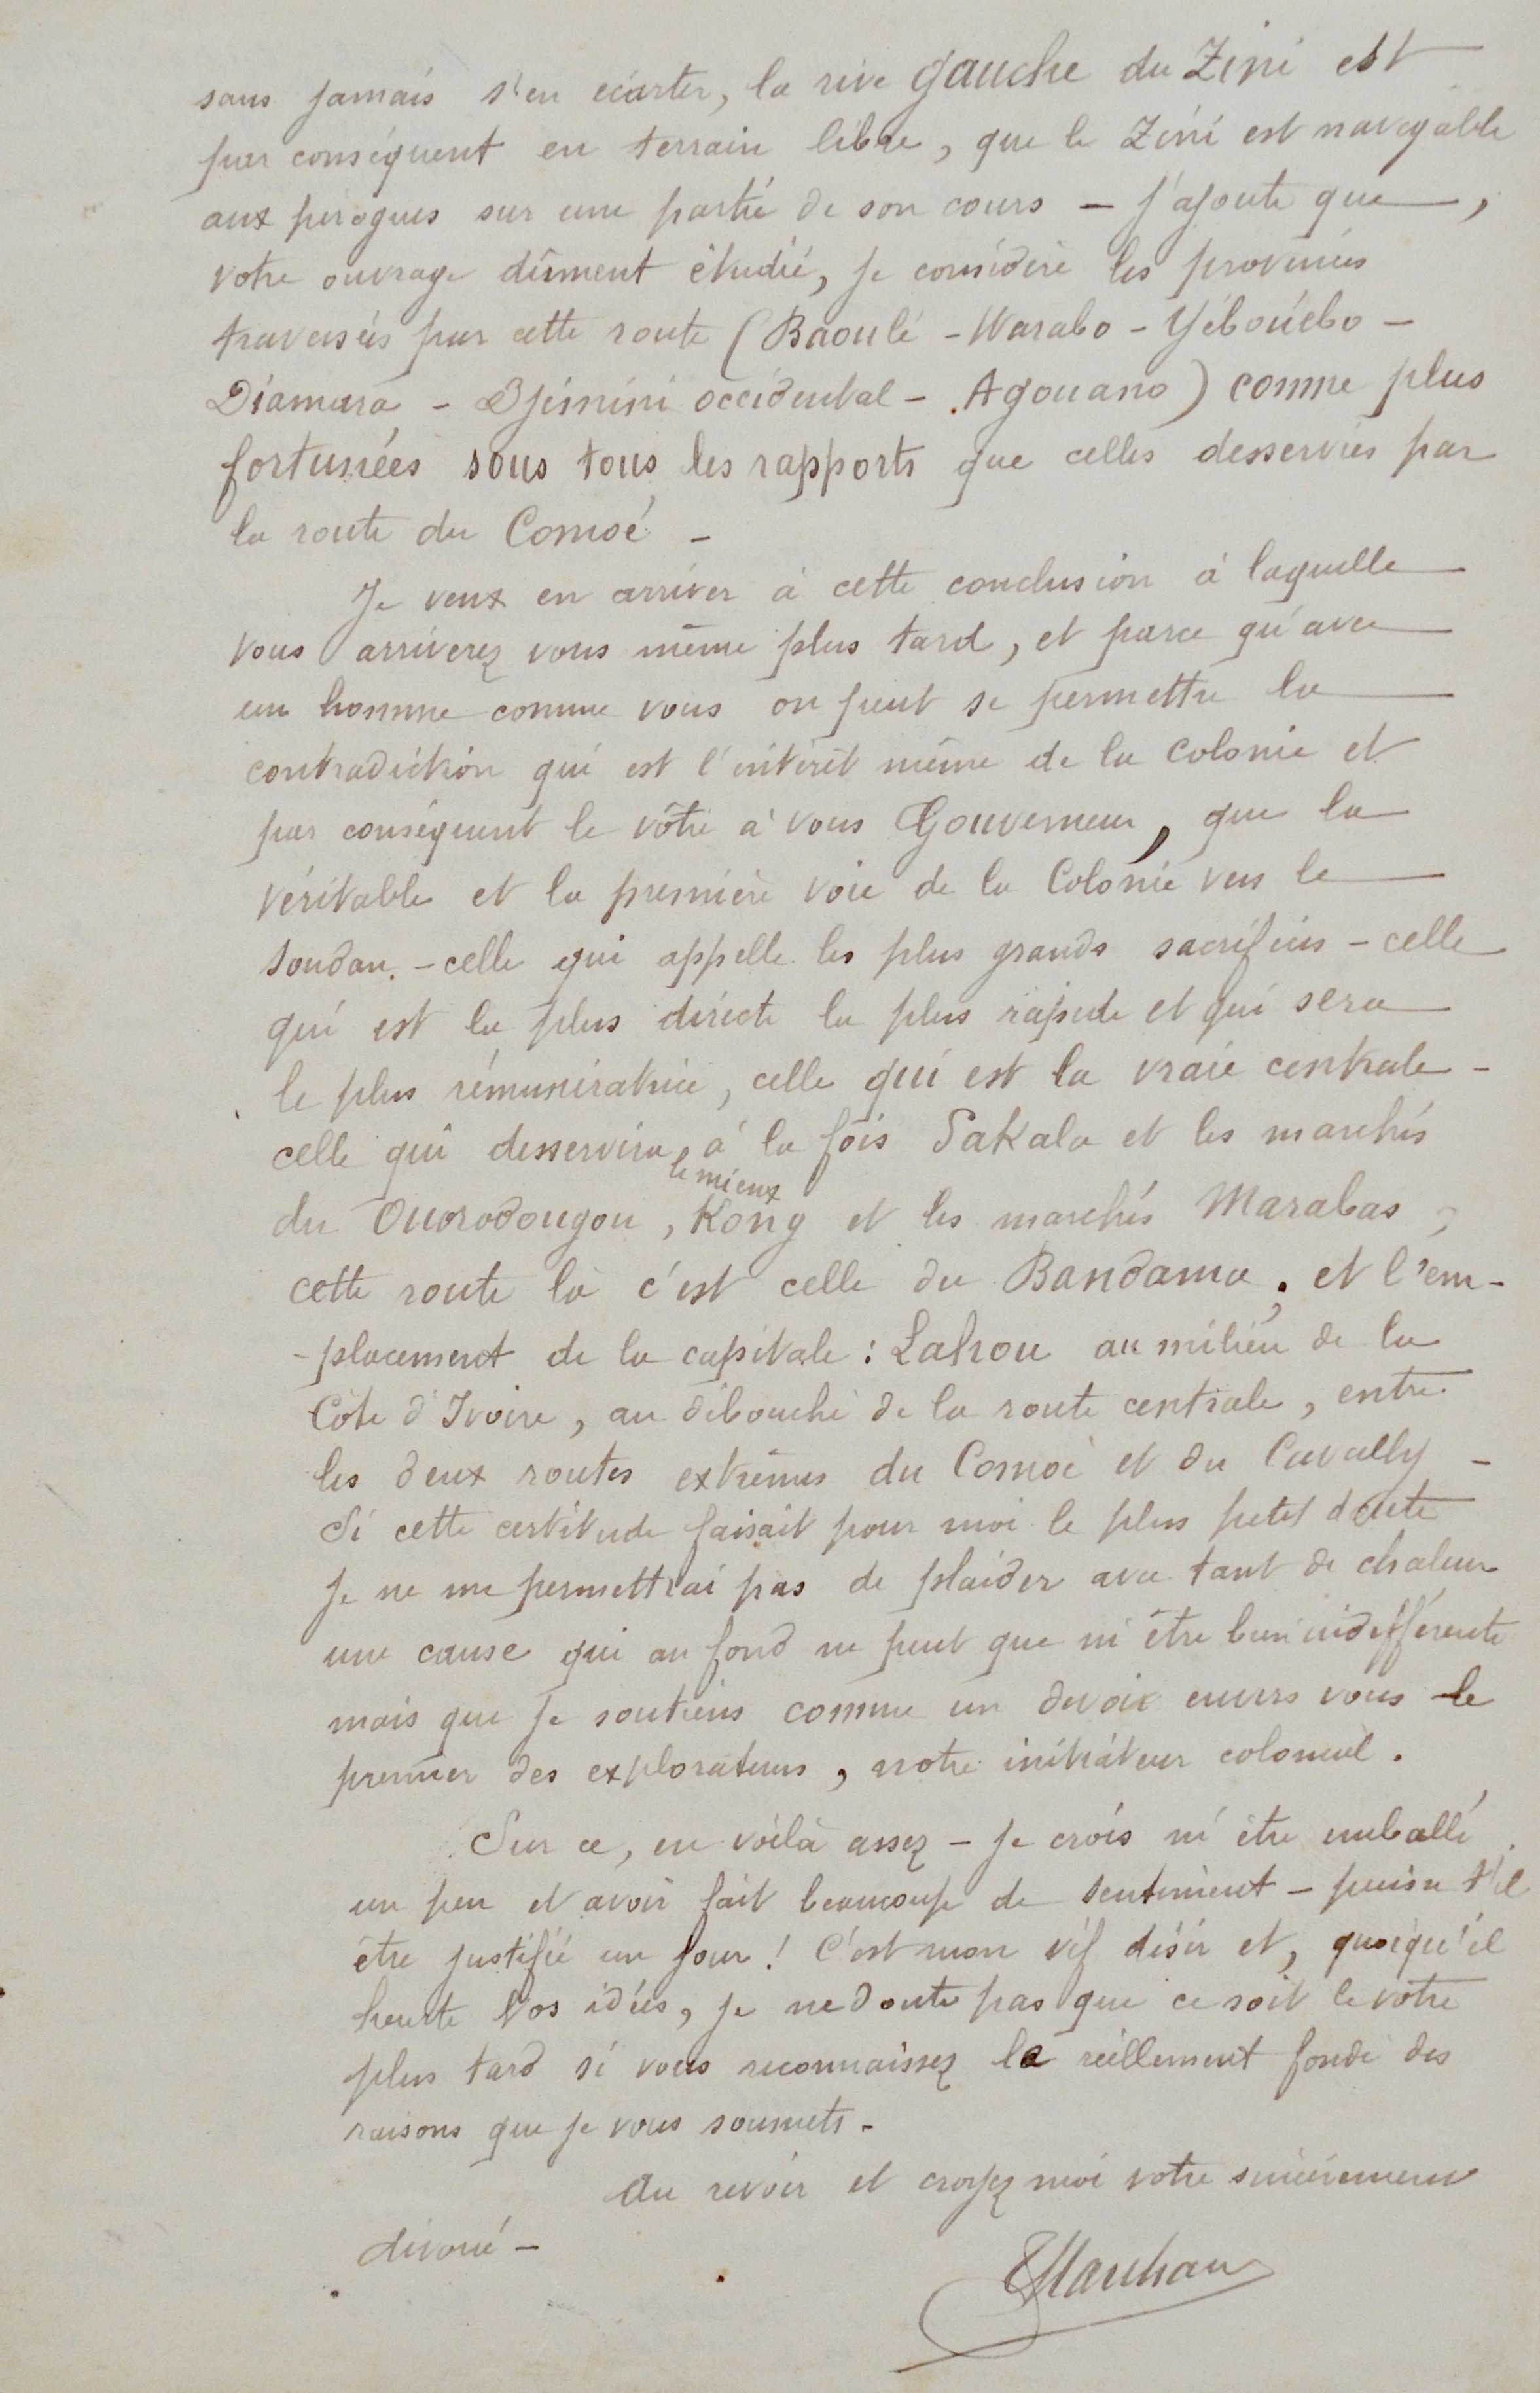 sans jamais s'en écarter, la rive gauche du Zini est
par conséquent en terrain libre, que le Zini est navigable
aux pirogues sur une partie de son cours — j'ajoute que —,
votre ouvrage dûment étudié, je considère les provinces
traversées par cette route (Baoulé - Warabo - Yébouébo -
Diamara - Djimini occidental - Agouano) comme plus
fortunées sous tous les rapports que celles desservies par
la route du Comoé -
Je veux en arriver à cette conclusion à laquelle
vous arriverez vous même plus tard, et parce qu'avec
un homme comme vous on peut se permettre la
contradiction qui est l'intérêt même de la Colonie et
par conséquent le vôtre à vous Gouverneur, que la
véritable et la première voie de la Colonie vers le
Soudan. - celle qui appelle les plus grands sacrifices - celle
qui est la plus directe la plus rapide et qui sera
le plus rémunératrice, celle qui est la vraie centrale -
celle qui desservira à la fois Sakala et les marchés
le mieux
du Ouorodougou, Kong et les marchés Marabas ;
cette route là c'est celle du Bandama ; et l'em-
-placement de la capitale : Lahou au milieu de la
Côte d'Ivoire, au débouché de la route centrale, entre
les deux routes extrêmes du Comoé et du Cavally -
Si cette certitude faisait pour moi le plus petit doute
je ne me permettrai pas de plaider avec tant de chaleur
une cause qui au fond ne peut que m'être bien indifférente
mais que je soutiens comme un devoir envers vous le
premier des explorateurs, notre initiateur colonial.
Sur ce, en voilà assez - je crois m'être emballé
un peu et avoir fait beaucoup de sentiment - puisse t'il
être justifié un jour ! C'est mon vif désir et, quoiqu'il
heurte vos idées, je ne doute pas que ce soit le votre
plus tard si vous reconnaissez le réellement fondé des
raisons que je vous soumets -
Au revoir et croyez moi votre sincèrement
dévoué -
Marchand